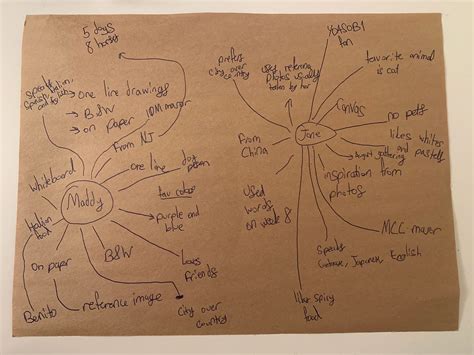 5 days
8 horses
→ one line drawings
→ B&W
→ on paper
IDM major
From NJ
one line
dog
person
fav colors
purple and
blue
Loves
Friends
City over
country
B&W
reference image
Benito
On paper
Italian
food
Whiteboard
Maddy
prefers
city over
country
uses reference
photos usually
taken by her
YOASOBI
fan
favorite animal
is cat
Canvas
no pets
likes white
and pastels
inspiration from
photos
MCC major
Speaks
Chinese, Japanese, English
like spicy
food
Used
words
on week 8
From
China
Jane